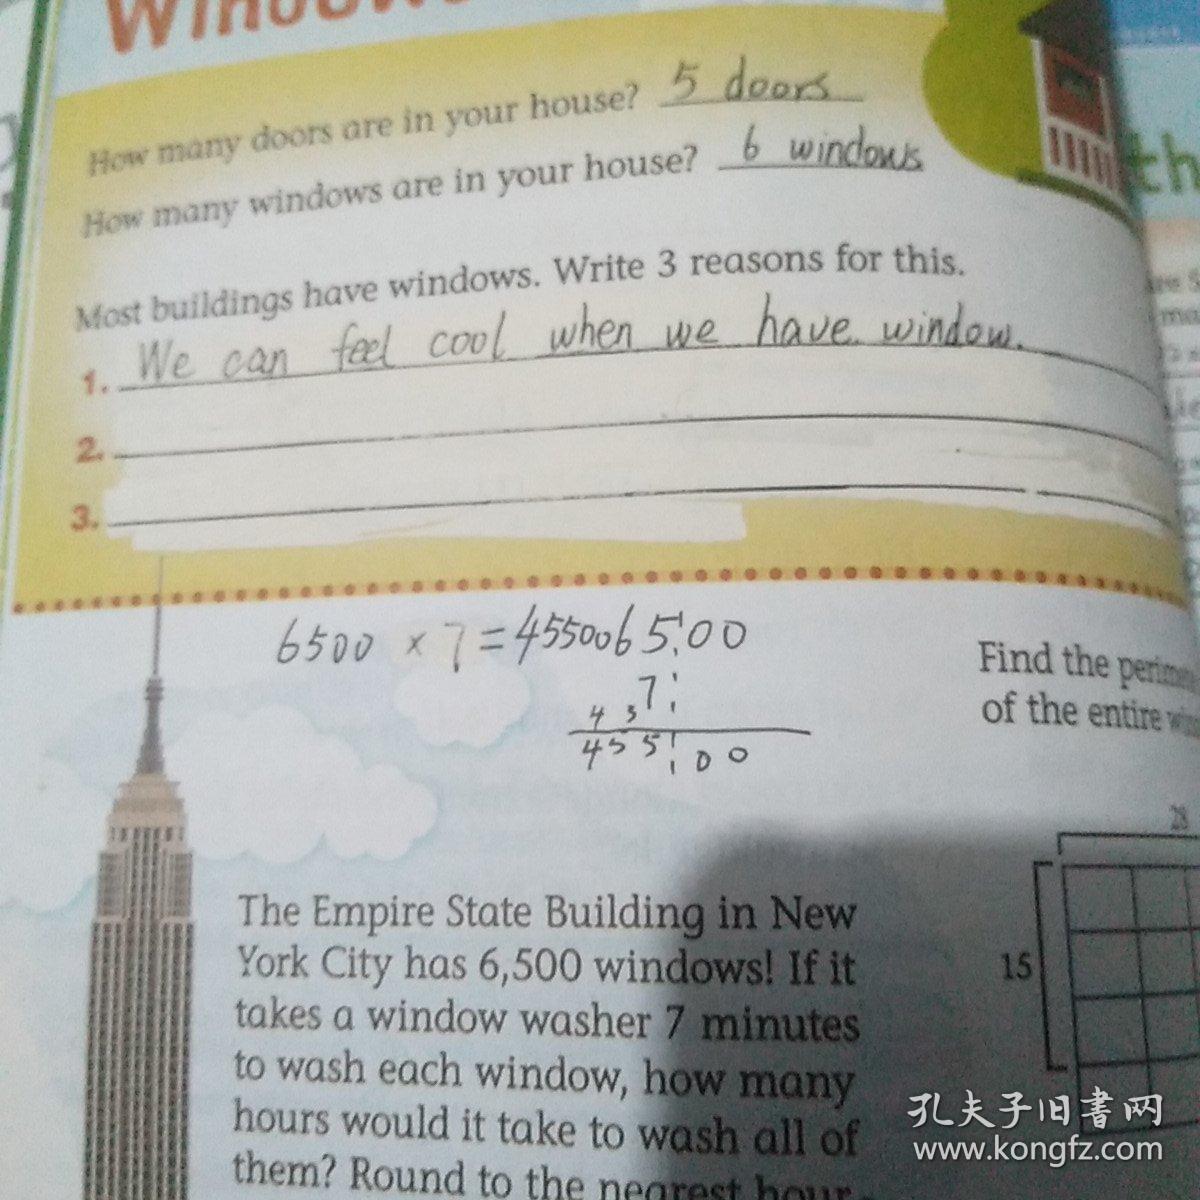 How many doors are in your house? 5 doors
How many windows are in your house? 6 windows
Most buildings have windows. Write 3 reasons for this.
1. We can feel cool when we have window.
2.
3.
6500 × 7 = 45500
6500
7
4 3
45500
Find the
of the entire
28
15
The Empire State Building in New
York City has 6,500 windows! If it
takes a window washer 7 minutes
to wash each window, how many
hours would it take to wash all of
them? Round to the nearest hour.
孔夫子旧書网
www.kongfz.com